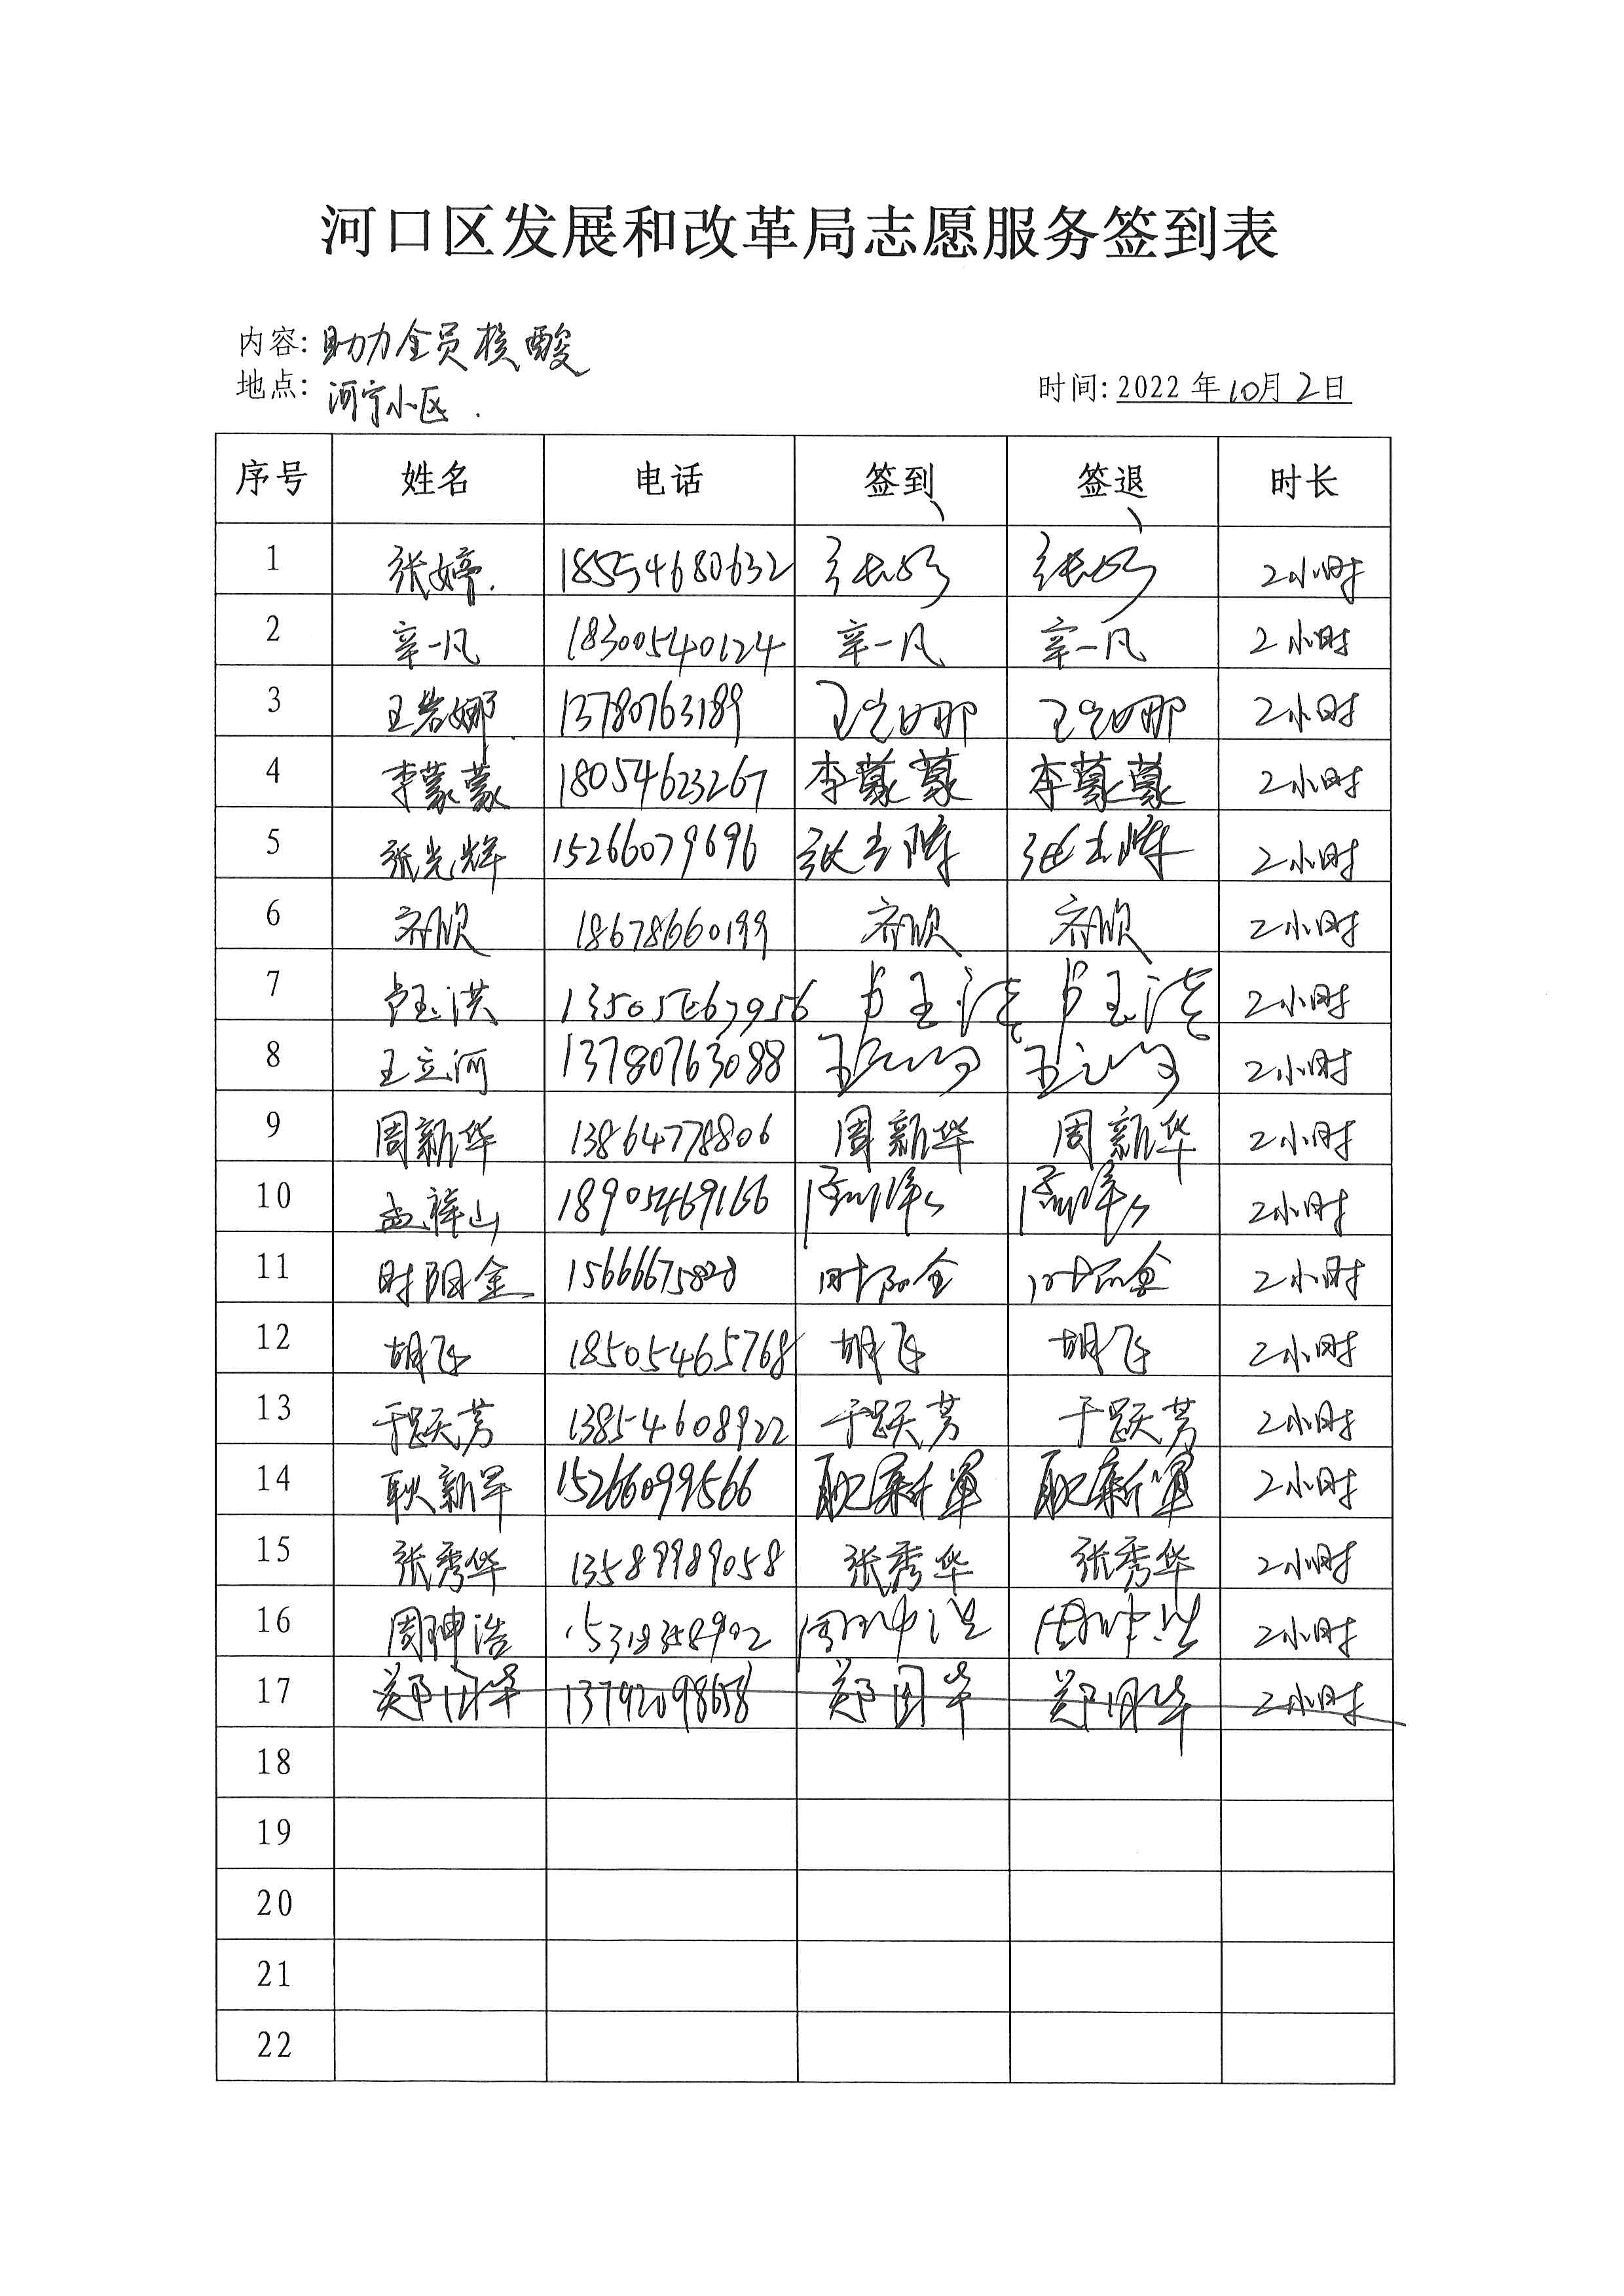 河口区发展和改革局志愿服务签到表
内容: 助力全员核酸
地点: 河宁小区.
时间: 2022年10月2日
序号 姓名 电话 签到 签退 时长
1 张婷. 18554680632 张婷 张婷 2小时
2 辛一凡 18300540124 辛一凡 辛一凡 2小时
3 王岩娜 13780763189 王岩娜 王岩娜 2小时
4 李蒙蒙 18054623267 李蒙蒙 李蒙蒙 2小时
5 张光辉 15266079696 张光辉 张光辉 2小时
6 齐欣 18678660199 齐欣 齐欣 2小时
7 卢玉洪 13505467956 卢玉洪 卢玉洪 2小时
8 王立河 13780763088 王立河 王立河 2小时
9 周新华 13864778806 周新华 周新华 2小时
10 孟祥山 18905469166 孟祥山 孟祥山 2小时
11 时阳金 15666675828 时阳金 时阳金 2小时
12 胡飞 18505465768 胡飞 胡飞 2小时
13 于跃芳 13854608922 于跃芳 于跃芳 2小时
14 耿新军 15266099566 耿新军 耿新军 2小时
15 张秀华 13589989058 张秀华 张秀华 2小时
16 周珅浩 周珅浩 周珅浩 2小时
17 郑国华 13792098658 郑国华 郑国华 2小时
18
19
20
21
22